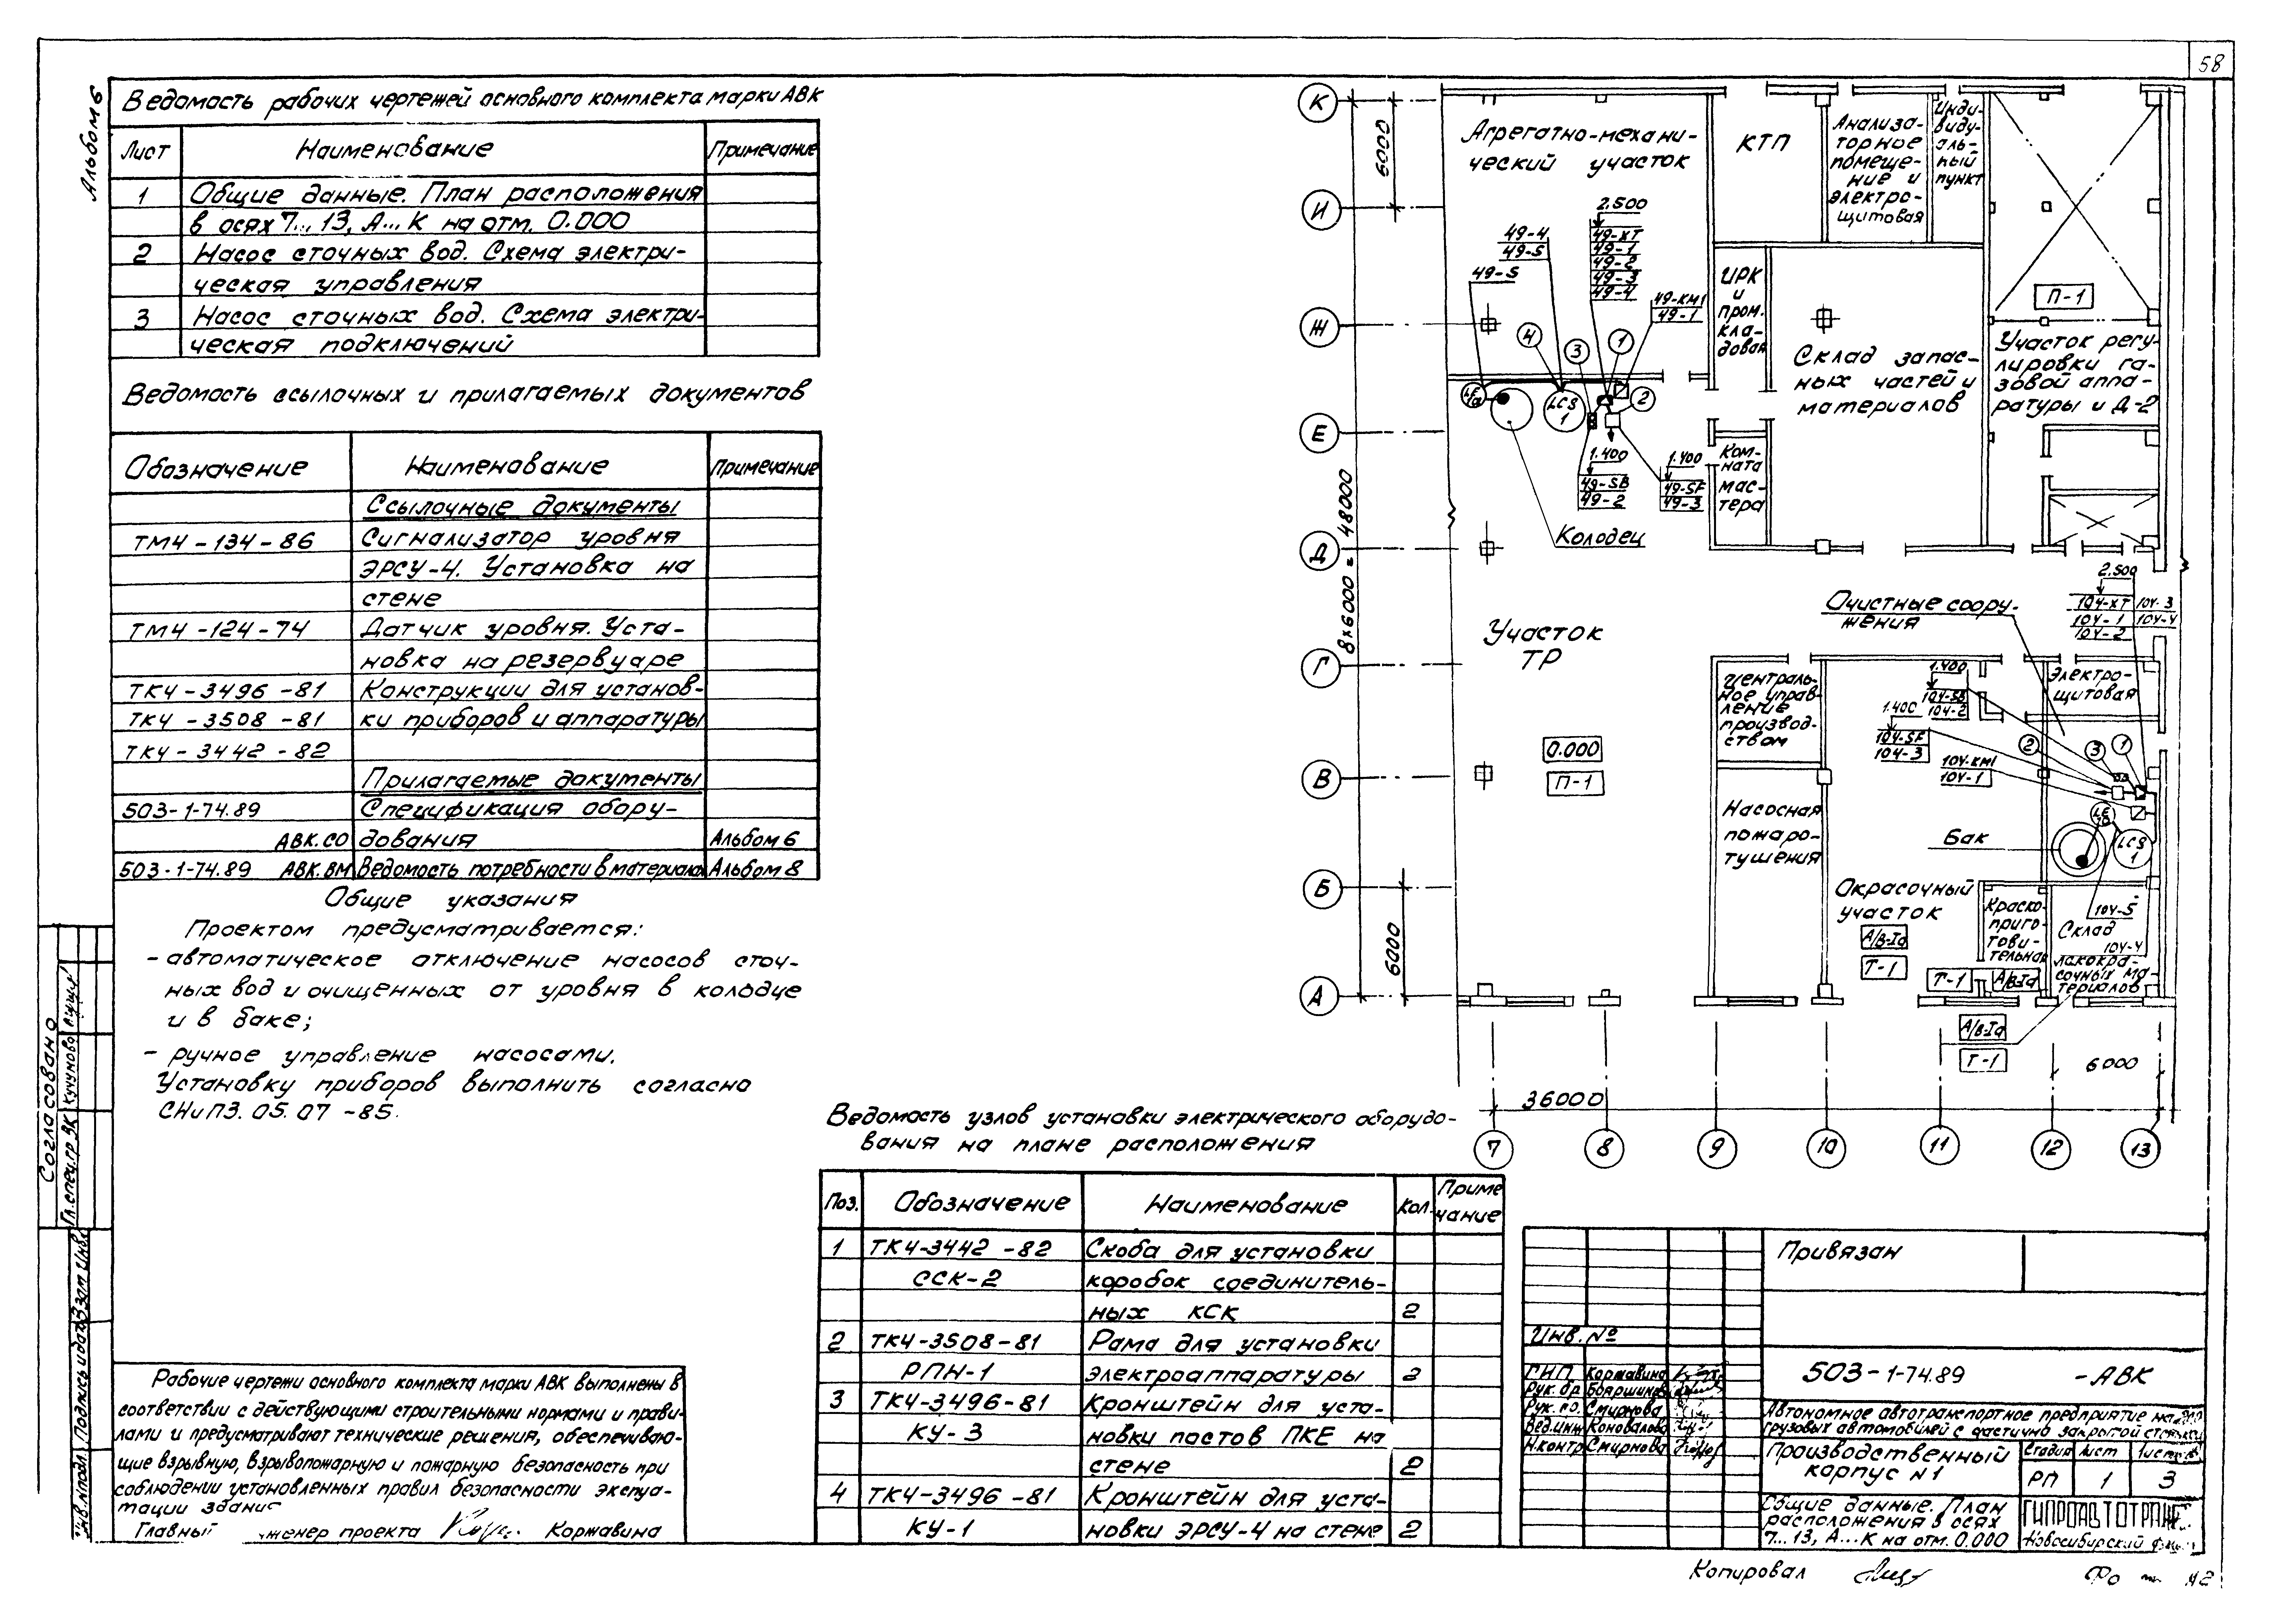 58
Альбом 6
Ведомость рабочих чертежей основного комплекта марки АВК
Лист Наименование Примечание
1 Общие данные. План расположения
в осях 7... 13, А...К на отм. 0.000
2 Насос сточных вод. Схема электри-
ческая управления
3 Насос сточных вод. Схема электри-
ческая подключений
Ведомость ссылочных и прилагаемых документов
Обозначение Наименование Примечание
Ссылочные документы
ТМ4-134-86 Сигнализатор уровня
ЭРСУ-4. Установка на
стене
ТМ4-124-74 Датчик уровня. Уста-
новка на резервуаре
ТК4-3496-81 Конструкции для установ-
ТК4-3508-81 ки приборов и аппаратуры
ТК4-3442-82
Прилагаемые документы
503-1-74.89 Спецификация обору-
АВК.СО дования Альбом 6
503-1-74.89 АВК.ВМ Ведомость потребности в материалах Альбом 8
Общие указания
Проектом предусматривается:
- автоматическое отключение насосов сточ-
ных вод и очищенных от уровня в колодце
и в баке;
- ручное управление насосами.
Установку приборов выполнить согласно
СНиП3.05.07-85.
Ведомость узлов установки электрического оборудо-
вания на плане расположения
Поз. Обозначение Наименование Кол. Приме
чание
1 ТК4-3442-82 Скоба для установки
ССК-2 коробок соединитель-
ных КСК 2
2 ТК4-3508-81 Рама для установки
РПН-1 электроаппаратуры 2
3 ТК4-3496-81 Кронштейн для уста-
КУ-3 новки постов ПКЕ на
стене 2
4 ТК4-3496-81 Кронштейн для уста-
КУ-1 новки ЭРСУ-4 на стене 2
Рабочие чертежи основного комплекта марки АВК выполнены в
соответствии с действующими строительными нормами и прави-
лами и предусматривают технические решения, обеспечиваю-
щие взрывную, взрывопожарную и пожарную безопасность при
соблюдении установленных правил безопасности эксплуа-
тации здания
Главный инженер проекта Коржавина
Согласовано
Гл.спец.гр ЭК Кучуново
Инв.№подл. Подпись и дата Взам. Инв.
К
И
Ж
Е
Д
Г
В
Б
А
6000
8×6000 = 48000
6000
Агрегатно-механи-
ческий участок
КТП
Анализа-
торное
помеще-
ние и
электро-
щитовая
Инди-
виду-
аль-
ный
пункт
2.500
49-XT
49-1
49-2
49-3
49-4
49-4
49-S
49-S
49-КМ1
49-1
4
3
1
2
LE
1а
LCS
1
1.400
49-SB
49-2
1.400
49-SF
49-3
Колодец
ИРК
и
пром.
кла-
довая
Ком-
ната
мас-
тера
Склад запас-
ных частей и
материалов
П-1
Участок регу-
лировки га-
зовой аппа-
ратуры и Д-2
Участок
ТР
0.000
П-1
Очистные соору-
жения
2.500
104-XT 104-3
104-1 104-4
104-2
Централь-
ное управ-
ление
производ-
ством
Электро-
щитовая
1.400
104-SB
104-2
1.400
104-SF
104-3
104-КМ1
104-1
2
3
1
Насосная
пожаро-
тушения
Бак
LCS
1
Окрасочный
участок
А/В-Iа
Т-1
Краско-
приго-
тови-
тельная
104-S
Склад
104-4
лакокра-
сочных ма-
териалов
Т-1 А/В-Iа
А/В-Iа
Т-1
6000
36000
7 8 9 10 11 12 13
Привязан
Инв. №
ГИП Коржавина
Рук. бр Бояршинов
Рук. гр. Смирнова
Вед.инж Коновалова
Н.контр Смирнова
503-1-74.89 -АВК
Автономное автотранспортное предприятие на
грузовых автомобилей с частично закрытой стоянкой
Производственный
корпус №1
Стадия Лист Листов
РП 1 3
Общие данные. План
расположения в осях
7...13, А...К на отм. 0.000
ГИПРОАВТОТРАНС
Новосибирский филиал
Копировал